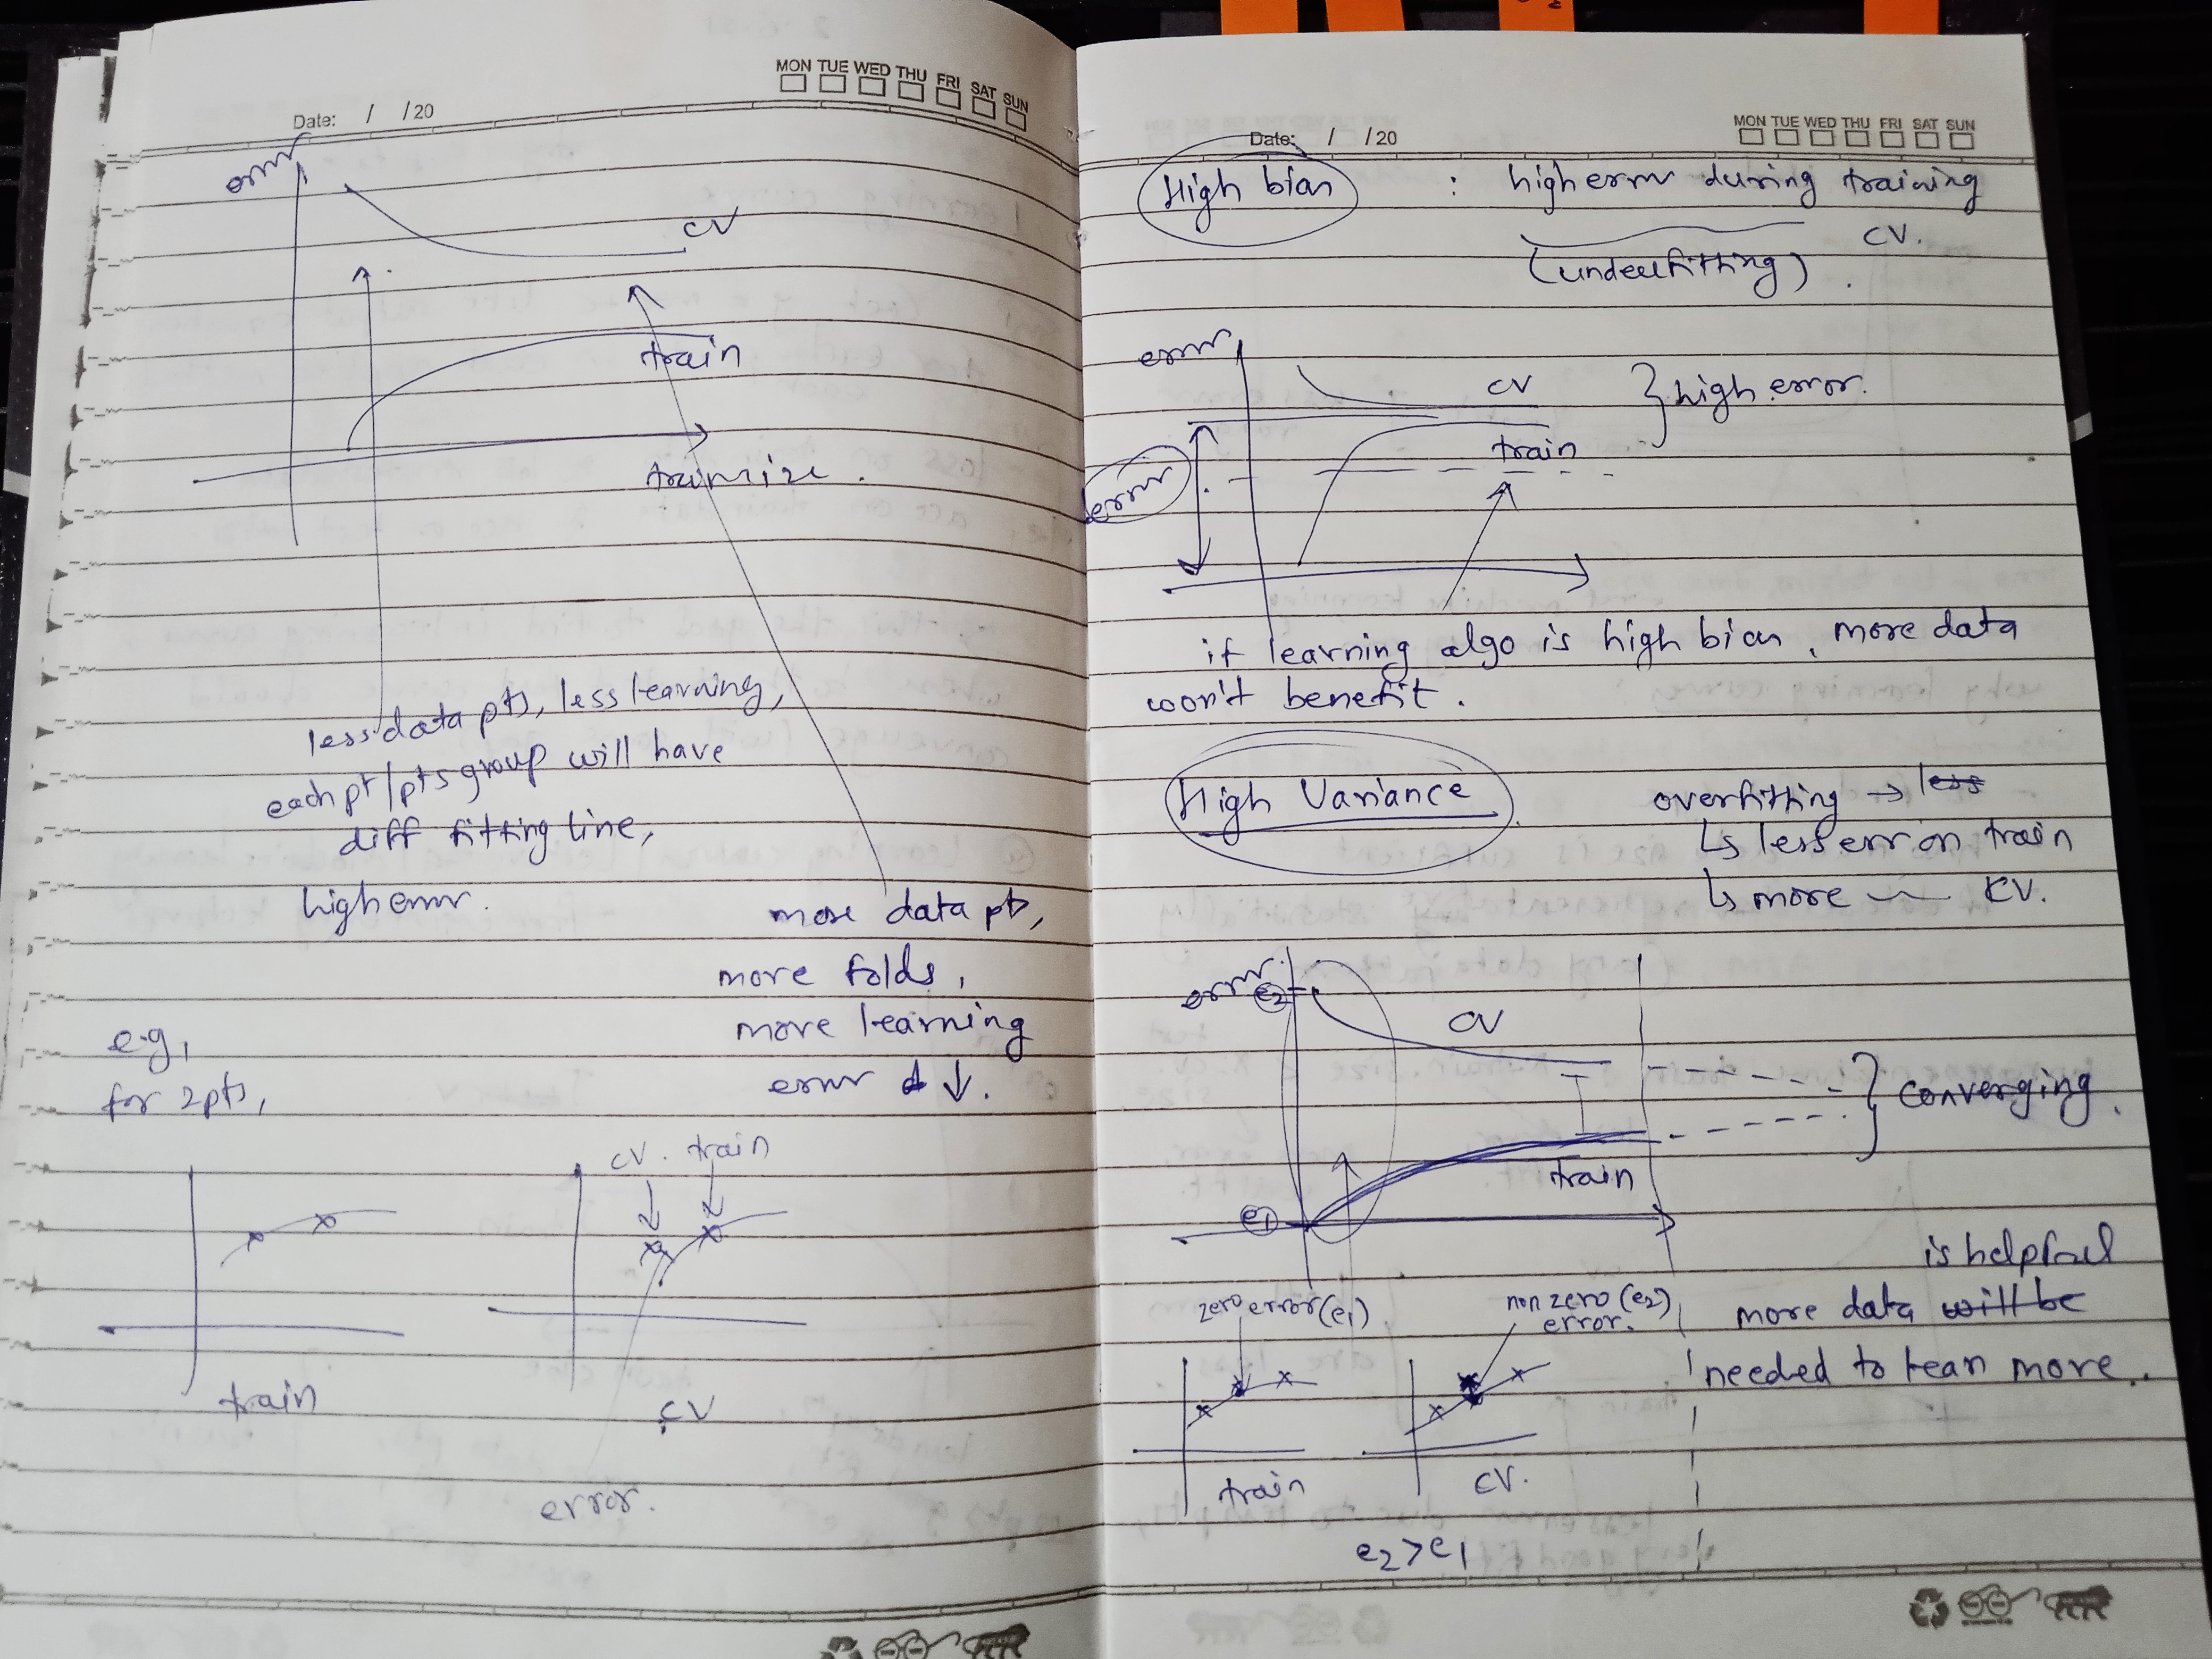 MON TUE WED THU FRI SAT SUN
Date: / /20
error
CV
train
trainsize.
less data pts, less learning,
each pt/pts group will have
diff fitting line,
high error.
more data pts,
more folds,
more learning
error d ↓.
e.g,
for 2pts,
CV. train
train
CV
error.
MON TUE WED THU FRI SAT SUN
Date: / /20
High bias : high error during training
CV.
(underfitting).
error
CV
} high error.
train
error
if learning algo is high bias, more data
won't benefit.
High Variance
overfitting → less
↳ less err on train
↳ more — CV.
error
e2
CV
} converging.
train
e1
is helpful
zero error (e1)
non zero (e2)
error.
more data will be
needed to lean more..
train
CV.
e2 > e1